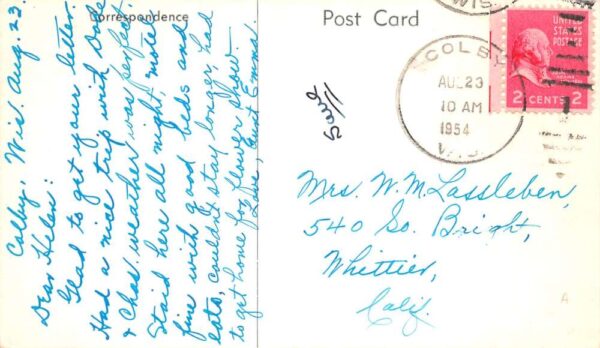 Correspondence
Post Card
WIS.
COLBY
AUG 23
10 AM
1954
WIS.
UNITED
STATES
POSTAGE
2 CENTS 2
Colby, Wis. Aug. 23.
Dear Helen:
Glad to get your letter.
Had a nice trip with
& Chas. weather was perfect.
Staid here all night, motel
fine with good beds and
eats, couldn't stay longer, had
to get home for flower show.
Love, Aunt Emma
Mrs. W. M. Lassleben,
540 So. Bright,
Whittier,
Calif.
A